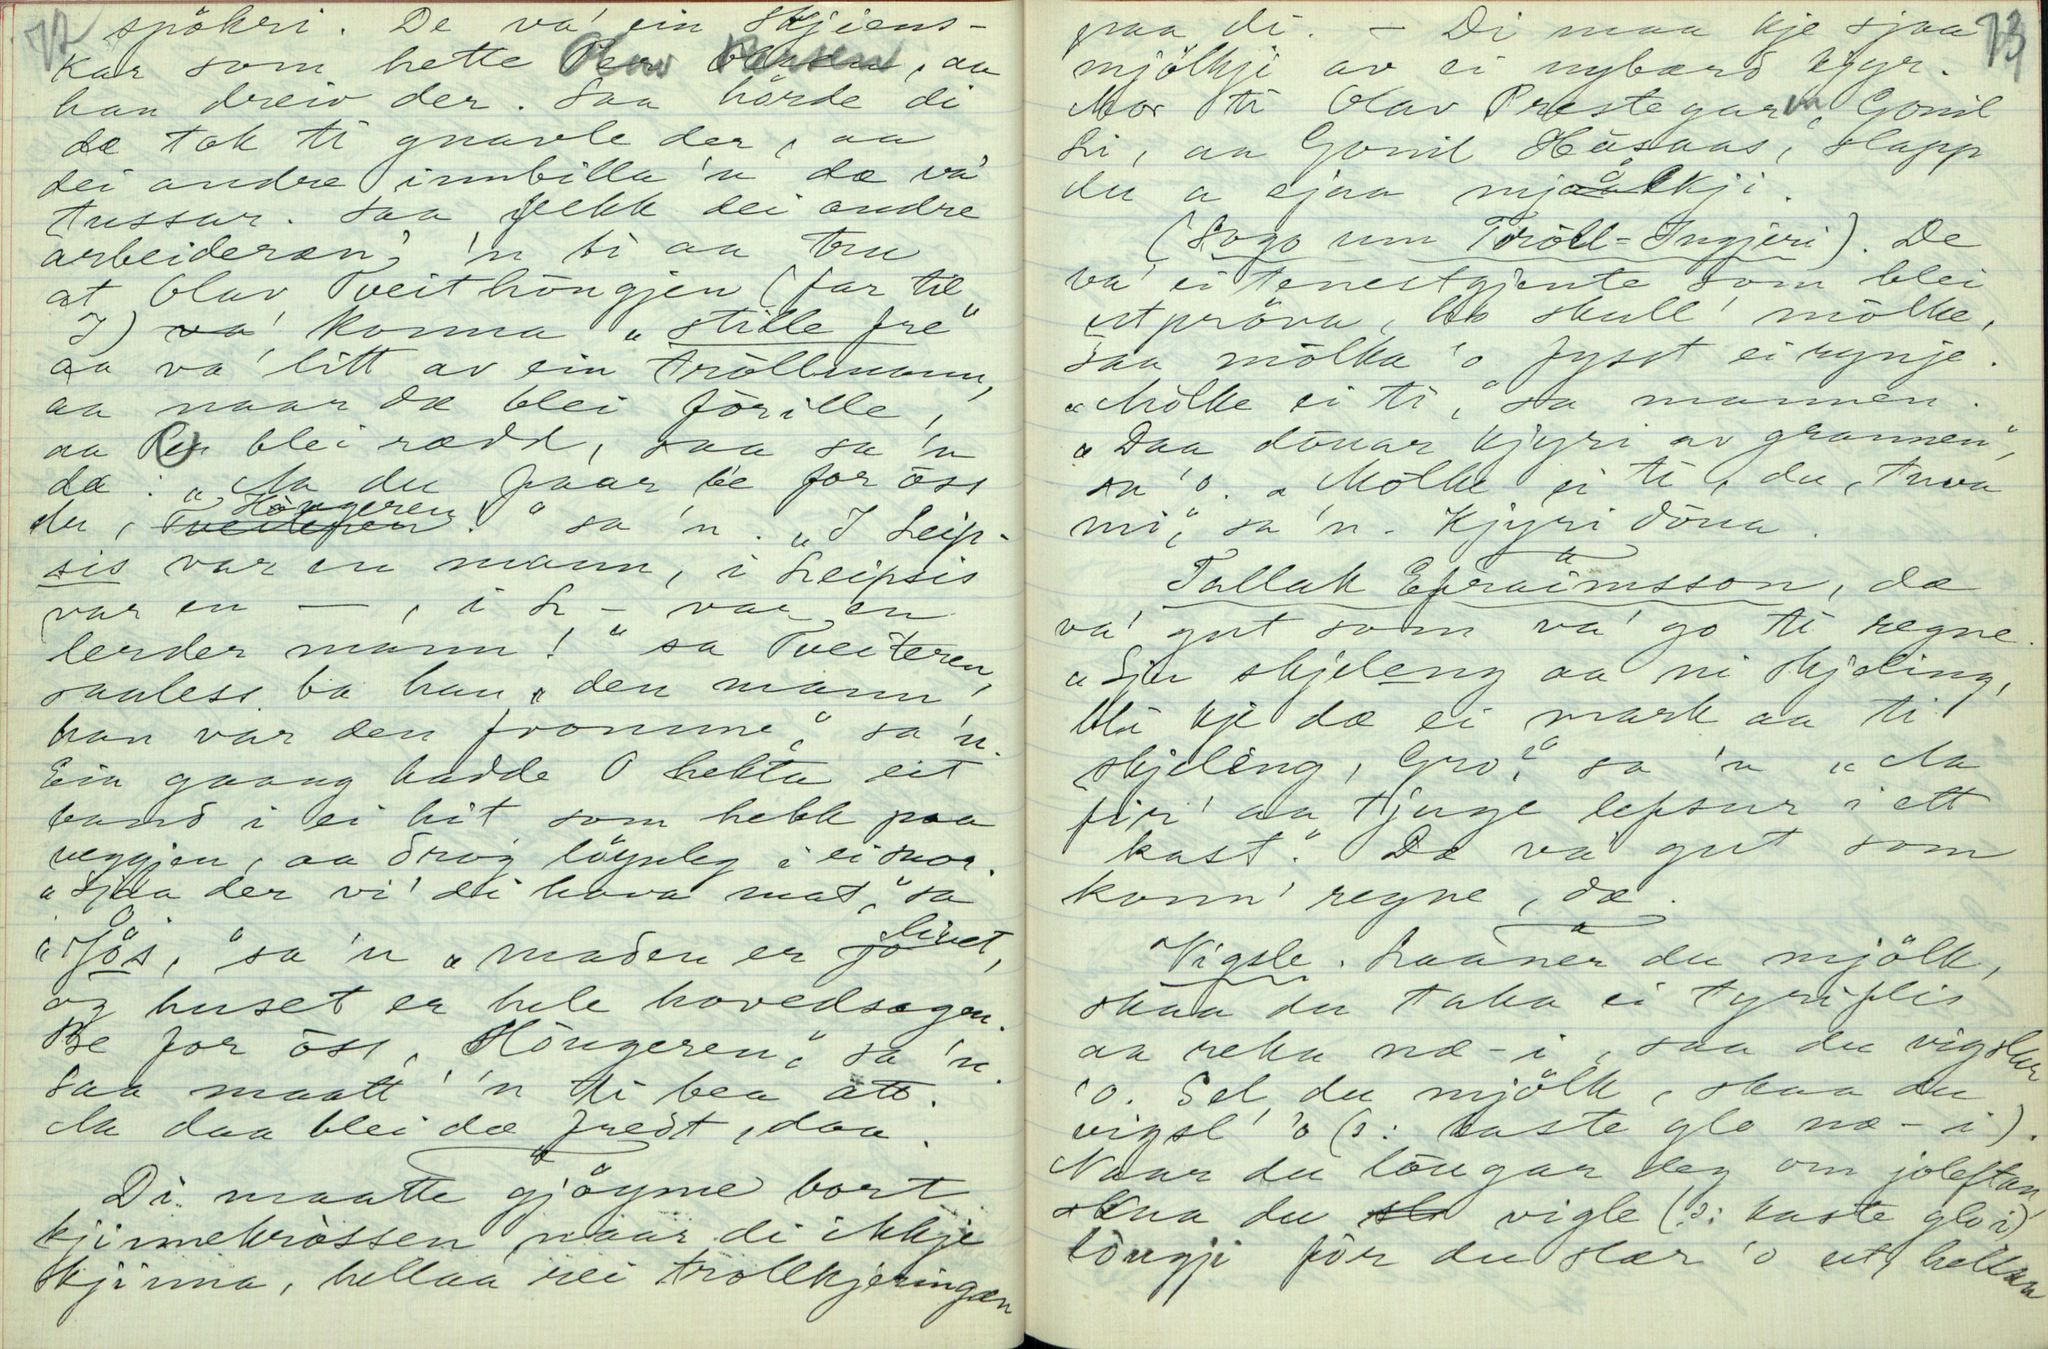 72
spökri. De va' ein Skjiens-
kar som hette Olav Persen, aa
han dreiv der. Saa hörde di
dæ tok ti gnavle der, aa
dei andre innbilla 'n dæ va'
tussar. Saa fekk dei andre
arbeideran' 'n ti aa tru
at Olav Tveithöngjen (far til
I) va' konna "stille fre"
aa va' litt av ein tröllmann,
aa naar dæ blei för ille,
aa O blei rædd, saa sa 'n
da: "Aa du faar be for öss
du, Höngeren!" sa 'n. "I Leip-
sis var en mann, i Leipsis
var en —, i L- var en
lerder mann!" sa Tveiteren,
saaless ba han, "den mann
han var den fromme", sa 'n.
Ein gaang hadde O hekta eit
band i ei hit som hekk paa
veggjen, aa drog löynleg i ei snor.
"Sjaa der vi' di hava mat," sa
"Jös," sa 'n "maden er livet,
og huset er hele hovedsagen.
Be for öss, Höngeren", sa 'n.
Saa maatt' 'n ti bea att.
Aa daa blei dæ fredt, daa.
Di maatte gjöyme bort
kjinnekrossen naar di ikkje
kjinna, hellaa rei trollkjeringan
73
paa di. – Di maa kje sjaa
mjölkji av ei nybærd kjyr.
Mor ti Olav Prestegarn Gonil
Li, aa Gonil Håsaas, slapp
du a sjaa mjålkji.
(Sogo um Tröll-Ingjeri). De
va' ei tenestgjente som blei
utpröva, ho skull' mölke,
saa mölka 'o fysst ei rynje.
"Mölke ei ti," sa mannen.
"Daa döuar kjyri av grannen",
sa 'o. "Mölke ei ti, du, truva
mi", sa 'n. Kjyri döua.
Tallak Efraimsson, dæ
va' gut som va' go ti regne.
"Sju skjeleng aa ni skjeling,
bli kje dæ ei mark aa ti
skjeling, Gro", sa 'n "Aa
fir' aa tjuge lefsur i ett
kast." Dæ va gut som
konn' regne, dæ.
Vigsle. Laaner du mjölk,
skaa du taka ei tyriflis
aa reka næ-i, saa du vigslar
'o. Sel du mjölk, skaa du
vigsl' 'o (ɔ: kaste glo næ-i).
Naar du löugar deg om joleftan,
skaa du vigle (ɔ: kaste glo i)
löugji för du slær 'o ut, hellaa